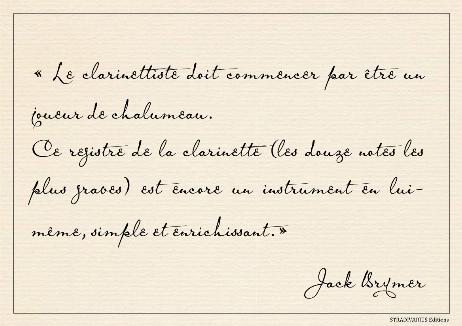 « Le clarinettiste doit commencer par être un
joueur de chalumeau.
Ce registre de la clarinette (les douze notes les
plus graves) est encore un instrument en lui-
même, simple et enrichissant. »
Jack Brymer
STRADIVARIUS Editions